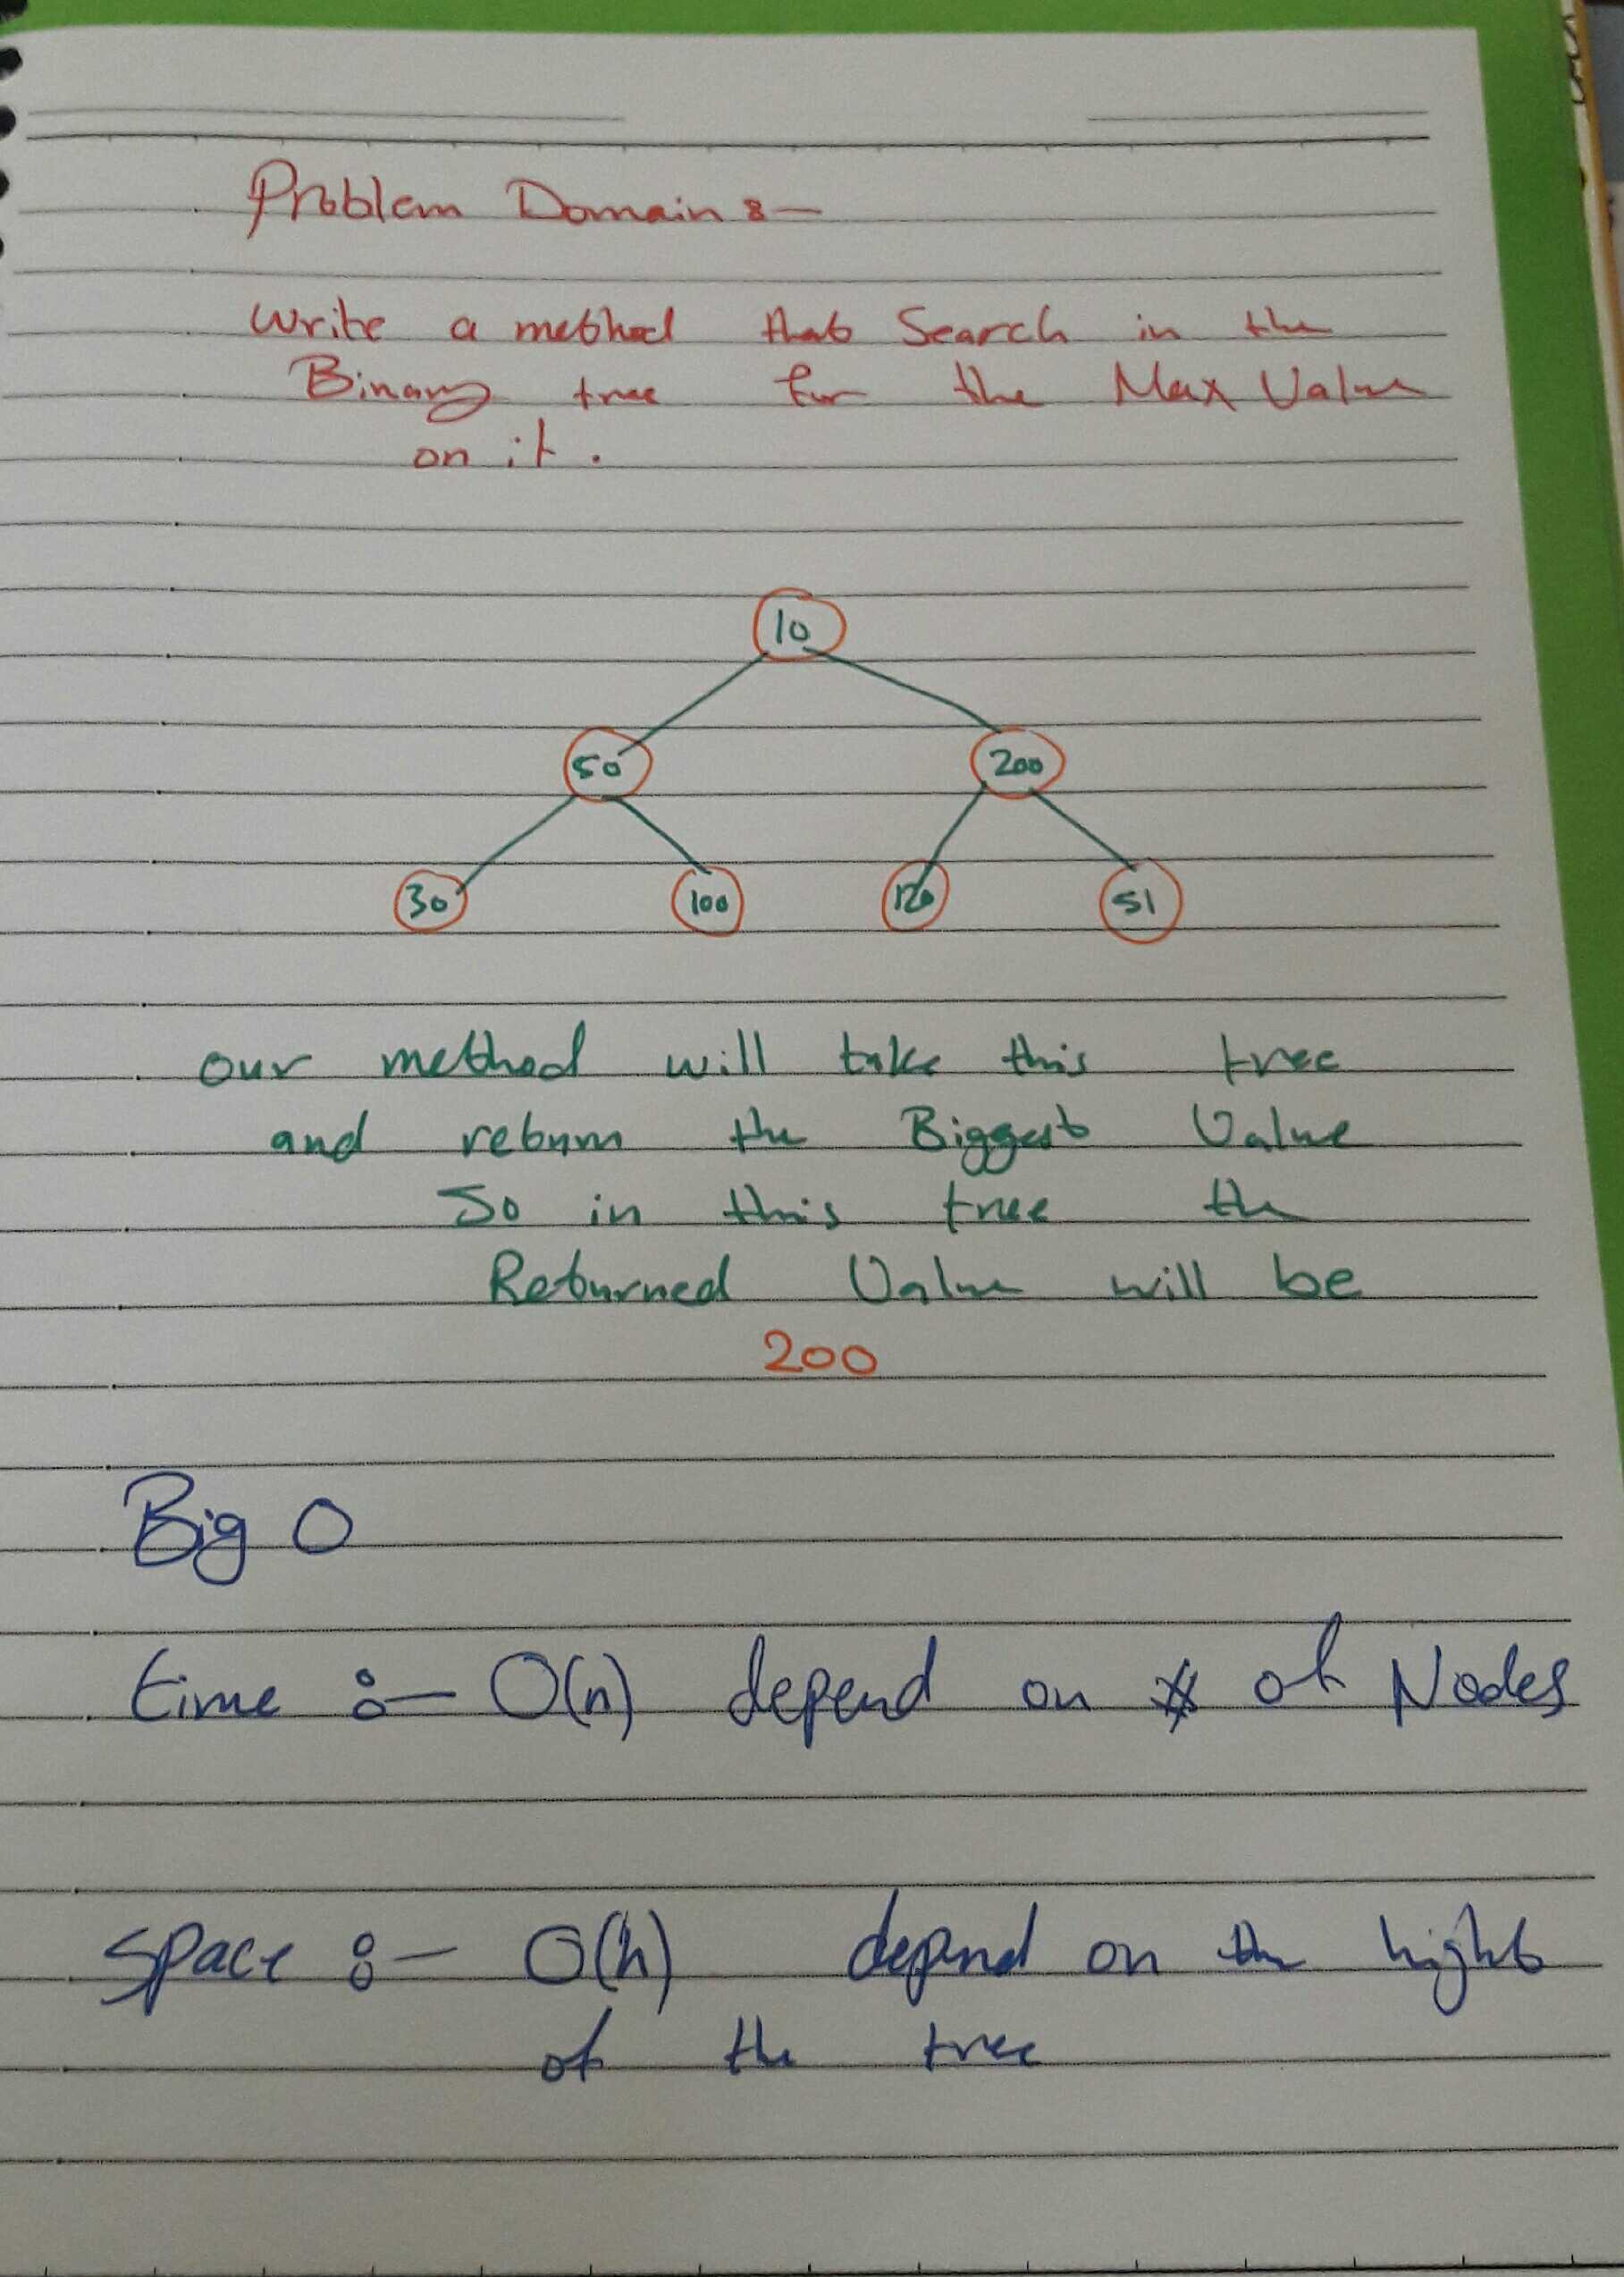 Problem Domain :-
Write a method that Search in the
Binary tree for the Max Value
on it.
10
50 200
30 100 120 51
our method will take this tree
and return the Biggest Value
So in this tree the
Returned Value will be
200
Big O
time :- O(n) depend on # of Nodes
Space :- O(h) depend on the hight
of the tree